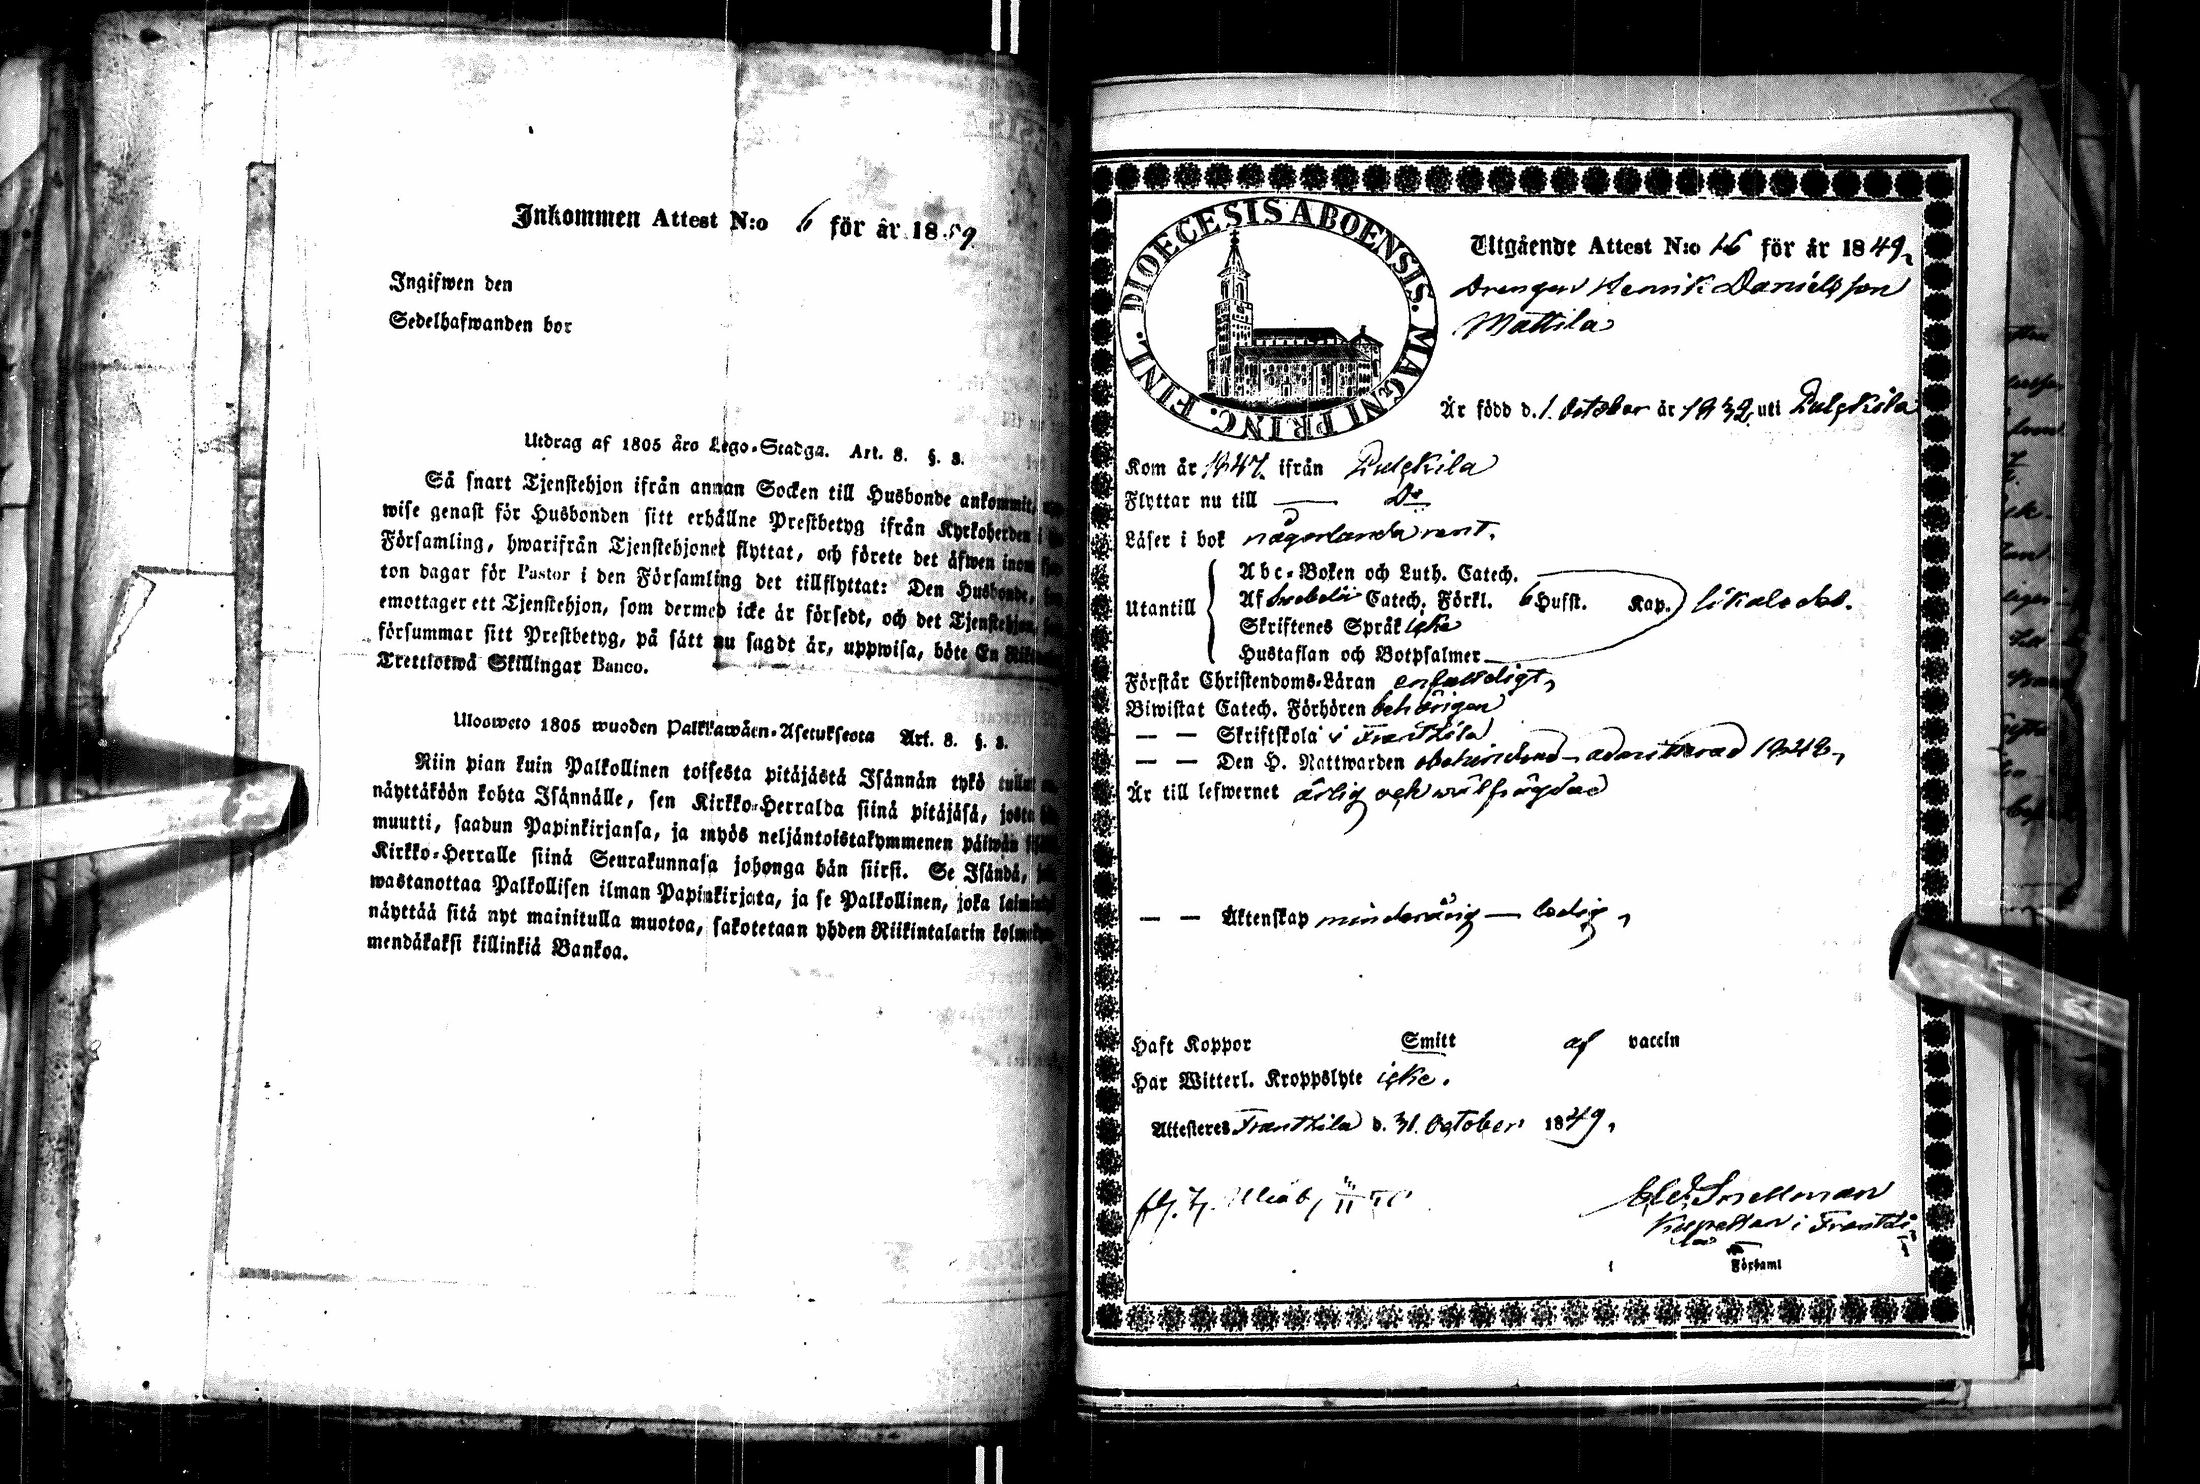 Inkommen Attest N:o 6 för år 1849
Ingifwen den
Sedelhafwanden bor
Utdrag af 1805 års Lego-Stadga. Art. 8. §. 3.
Så snart Tjenstehjon ifrån annan Socken till Husbonde ankommit,
wise genast för Husbonden sitt erhållne Prestbetyg ifrån Kyrkoherden i
Församling, hwarifrån Tjenstehjonet flyttat, och förete det äfwen inom
ton dagar för Pastor i den Församling det tillflyttat: Den Husbonde,
emottager ett Tjenstehjon, som dermed icke är försedt, och det Tjenstehjon,
försummar sitt Prestbetyg, på sätt nu sagdt är, uppwisa, böte En
Trettiotwå Skillingar Banco.
Ulosweto 1805 wuoden Palkkawäen-Asetuksesta Art. 8. §. 3.
Niin pian kuin Palkollinen toisesta pitäjästä Isännän tykö tullut
näyttäköön kohta Isännälle, sen Kirkko-Herralda siinä pitäjäsä, josta
muutti, saadun Papinkirjansa, ja myös neljäntoistakymmenen päiwän
Kirkko-Herralle siinä Seurakunnasa johonga hän siirsi. Se Isändä,
wastanottaa Palkollisen ilman Papinkirjata, ja se Palkollinen, joka
näyttää sitä nyt mainitulla muotoa, sakotetaan yhden Riikintalarin
mendäkaksi killinkiä Bankoa.
DIOECESIS ABOENSIS. MAGNI PRINC. FINL.
Utgående Attest N:o 16 för år 1849,
Drengen Henrik Danielsson
Mattila
Är född d. 1. October år 1832 uti Pulkkila
Kom år 1847. ifrån Pulkkila
Flyttar nu till — Do
Läser i bok någorlunda rent.
Utantill
Abc-Boken och Luth. Catech.
Af Svebelii Catech. Förkl. 6 Hufst. Kap. likaledes.
Skriftenes Språk icke
Hustaflan och Botpsalmer
Förstår Christendoms-Läran enfaldigt,
Biwistat Catech. Förhören behörigen
— — Skriftskola i Frantsila
— — Den H. Nattwarden obehindrad – admitterad 1848,
Är till lefwernet ärlig och wälfrägdad
— — Äktenskap minderårig — ledig,
Haft Koppor Smitt af vaccin
Har Witterl. Kroppslyte icke.
Attesteres Frantsila d. 31. October 1849,
Snellman
Kapellan i Frantsi-
la
Församl